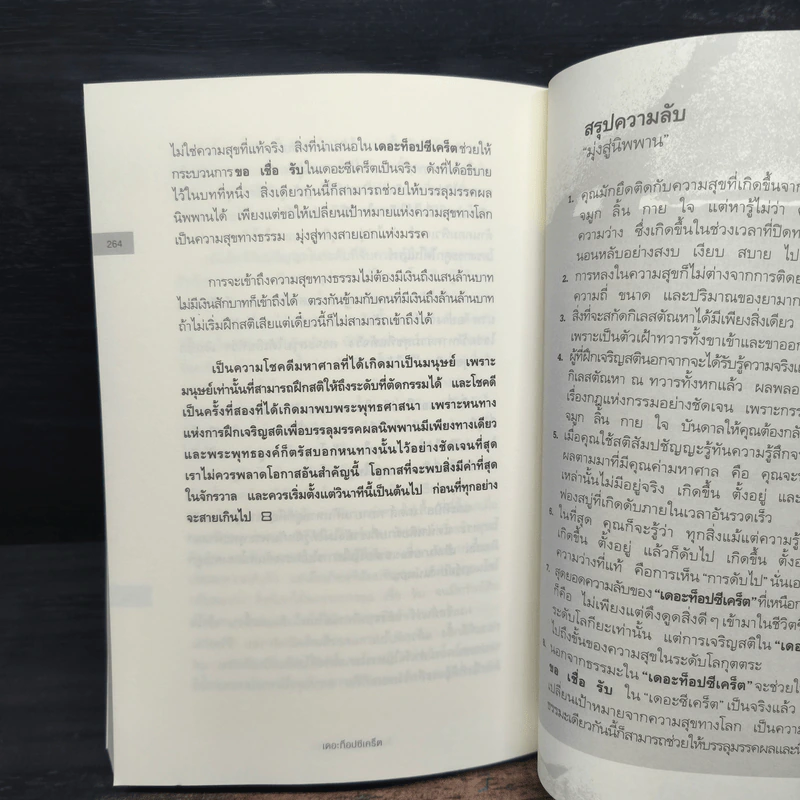 ไม่ใช่ความสุขที่แท้จริง สิ่งที่นำเสนอใน เดอะท็อปซีเคร็ต ช่วยให้
กระบวนการ ขอ เชื่อ รับ ในเดอะซีเคร็ตเป็นจริง ดังที่ได้อธิบาย
ไว้ในบทที่หนึ่ง สิ่งเดียวกันนี้ก็สามารถช่วยให้บรรลุมรรคผล
นิพพานได้ เพียงแต่ขอให้เปลี่ยนเป้าหมายแห่งความสุขทางโลก
เป็นความสุขทางธรรม มุ่งสู่ทางสายเอกแห่งมรรค
264
การจะเข้าถึงความสุขทางธรรมไม่ต้องมีเงินถึงแสนล้านบาท
ไม่มีเงินสักบาทก็เข้าถึงได้ ตรงกันข้ามกับคนที่มีเงินถึงล้านล้านบาท
ถ้าไม่เริ่มฝึกสติเสียแต่เดี๋ยวนี้ก็ไม่สามารถเข้าถึงได้
เป็นความโชคดีมหาศาลที่ได้เกิดมาเป็นมนุษย์ เพราะ
มนุษย์เท่านั้นที่สามารถฝึกสติให้ถึงระดับที่ตัดกรรมได้ และโชคดี
เป็นครั้งที่สองที่ได้เกิดมาพบพระพุทธศาสนา เพราะหนทาง
แห่งการฝึกเจริญสติเพื่อบรรลุมรรคผลนิพพานมีเพียงทางเดียว
และพระพุทธองค์ก็ตรัสบอกหนทางนั้นไว้อย่างชัดเจนที่สุด
เราไม่ควรพลาดโอกาสอันสำคัญนี้ โอกาสที่จะพบสิ่งมีค่าที่สุด
ในจักรวาล และควรเริ่มตั้งแต่วินาทีนี้เป็นต้นไป ก่อนที่ทุกอย่าง
จะสายเกินไป
เดอะท็อปซีเคร็ต
สรุปความลับ
"มุ่งสู่นิพพาน"
1. คุณมักยึดติดกับความสุขที่เกิดขึ้นจาก
จมูก ลิ้น กาย ใจ แต่หารู้ไม่ว่า
ความว่าง ซึ่งเกิดขึ้นในช่วงเวลาที่ปิดท
นอนหลับอย่างสงบ เงียบ สบาย ไป
2. การหลงในความสุขก็ไม่ต่างจากการติดย
ความถี่ ขนาด และปริมาณของยามาก
3. สิ่งที่จะสกัดกิเลสตัณหาได้มีเพียงสิ่งเดียว
เพราะเป็นตัวเฝ้าทวารทั้งขาเข้าและขาออก
4. ผู้ที่ฝึกเจริญสตินอกจากจะได้รับรู้ความจริงแ
กิเลสตัณหา ณ ทวารทั้งหกแล้ว ผลพลอ
เรื่องกฎแห่งกรรมอย่างชัดเจน เพราะกรร
จมูก ลิ้น กาย ใจ บันดาลให้คุณต้องกลั
5. เมื่อคุณใช้สติสัมปชัญญะรู้ทันความรู้สึกจา
ผลตามมาที่มีคุณค่ามหาศาล คือ คุณจะร
เหล่านั้นไม่มีอยู่จริง เกิดขึ้น ตั้งอยู่ และ
ฟองสบู่ที่เกิดดับภายในเวลาอันรวดเร็ว
6. ในที่สุด คุณก็จะรู้ว่า ทุกสิ่งแม้แต่ความรู้
เกิดขึ้น ตั้งอยู่ แล้วก็ดับไป เกิดขึ้น ตั้งอ
ความว่างที่แท้ คือการเห็น "การดับไป" นั่นเอ
7. สุดยอดความลับของ "เดอะท็อปซีเคร็ต" ที่เหนือก
ก็คือ ไม่เพียงแต่ดึงดูดสิ่งดี ๆ เข้ามาในชีวิต
ระดับโลกียะเท่านั้น แต่การเจริญสติใน "เดอ
ไปถึงขั้นของความสุขในระดับโลกุตตระ
8. นอกจากธรรมะใน "เดอะท็อปซีเคร็ต" จะช่วยให้
ขอ เชื่อ รับ ใน "เดอะซีเคร็ต" เป็นจริงแล้ว
เปลี่ยนเป้าหมายจากความสุขทางโลก เป็นความ
ธรรมะเดียวกันนี้ก็สามารถช่วยให้บรรลุมรรคผลและนิ